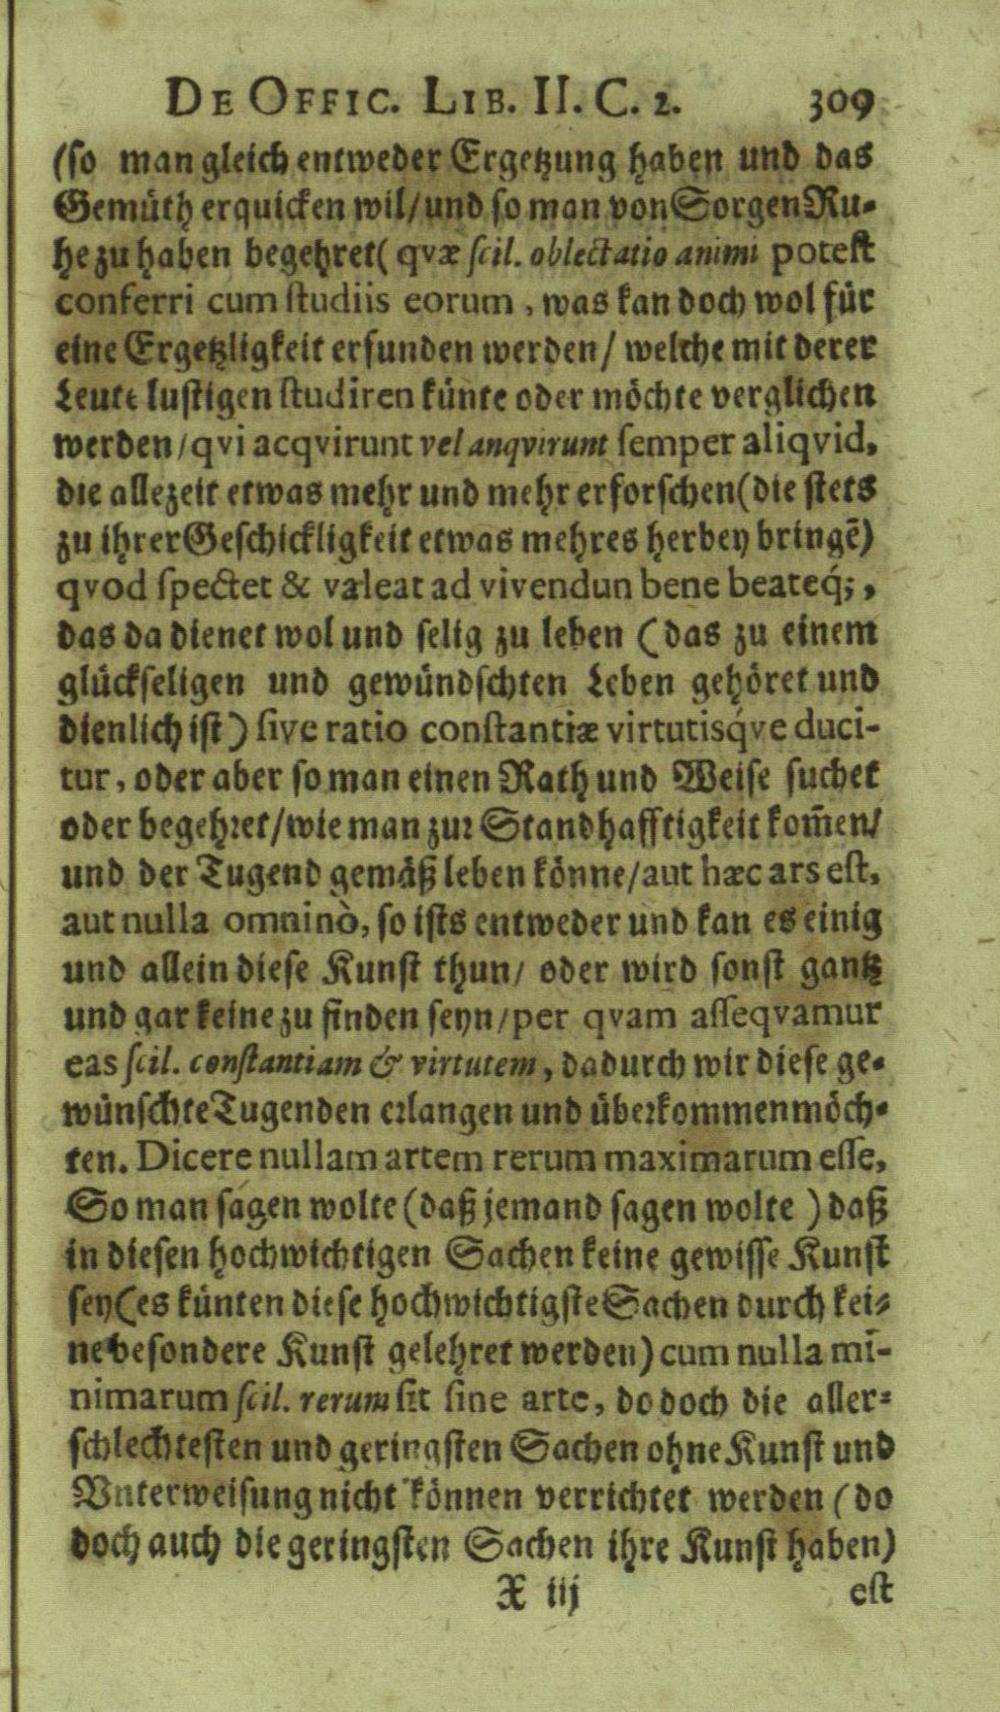 DE OFFIC. LIB. II. C. 2. 309
(so man gleich entweder Ergetzung haben und das
Gemüth erquicken wil/und so man von Sorgen Ru-
he zu haben begehret( qvæ scil. oblectatio animi potest
conferri cum studiis eorum, was kan doch wol für
eine Ergetzligkeit erfunden werden/ welche mit derer
Leute lustigen studiren künte oder möchte verglichen
werden/qvi acqvirunt vel anqvirunt semper aliqvid,
die allezeit etwas mehr und mehr erforschen(die stets
zu ihrer Geschickligkeit etwas mehres herbey bringē)
qvod spectet & valeat ad vivendun bene beateq́;,
das da dienet wol und selig zu leben (das zu einem
glückseligen und gewündschten Leben gehöret und
dienlich ist) sive ratio constantiæ virtutisq́ve duci-
tur, oder aber so man einen Rath und Weise suchet
oder begehret/wie man zur Standhafftigkeit kom̄en/
und der Tugend gemäß leben könne/aut hæc ars est,
aut nulla omninò, so ists entweder und kan es einig
und allein diese Kunst thun/ oder wird sonst gantz
und gar keine zu finden seyn/per qvam asseqvamur
eas scil. constantiam & virtutem, dadurch wir diese ge-
wünschte Tugenden erlangen und überkommen möch-
ten. Dicere nullam artem rerum maximarum esse,
So man sagen wolte (daß jemand sagen wolte ) daß
in diesen hochwichtigen Sachen keine gewisse Kunst
sey(es künten diese hochwichtigste Sachen durch kei-
ne besondere Kunst gelehret werden) cum nulla mi-
nimarum scil. rerum sit sine arte, do doch die aller-
schlechtesten und geringsten Sachen ohne Kunst und
Vnterweisung nicht können verrichtet werden (do
doch auch die geringsten Sachen ihre Kunst haben)
X iij est